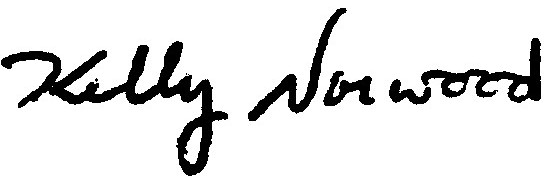 Kelly Norwood